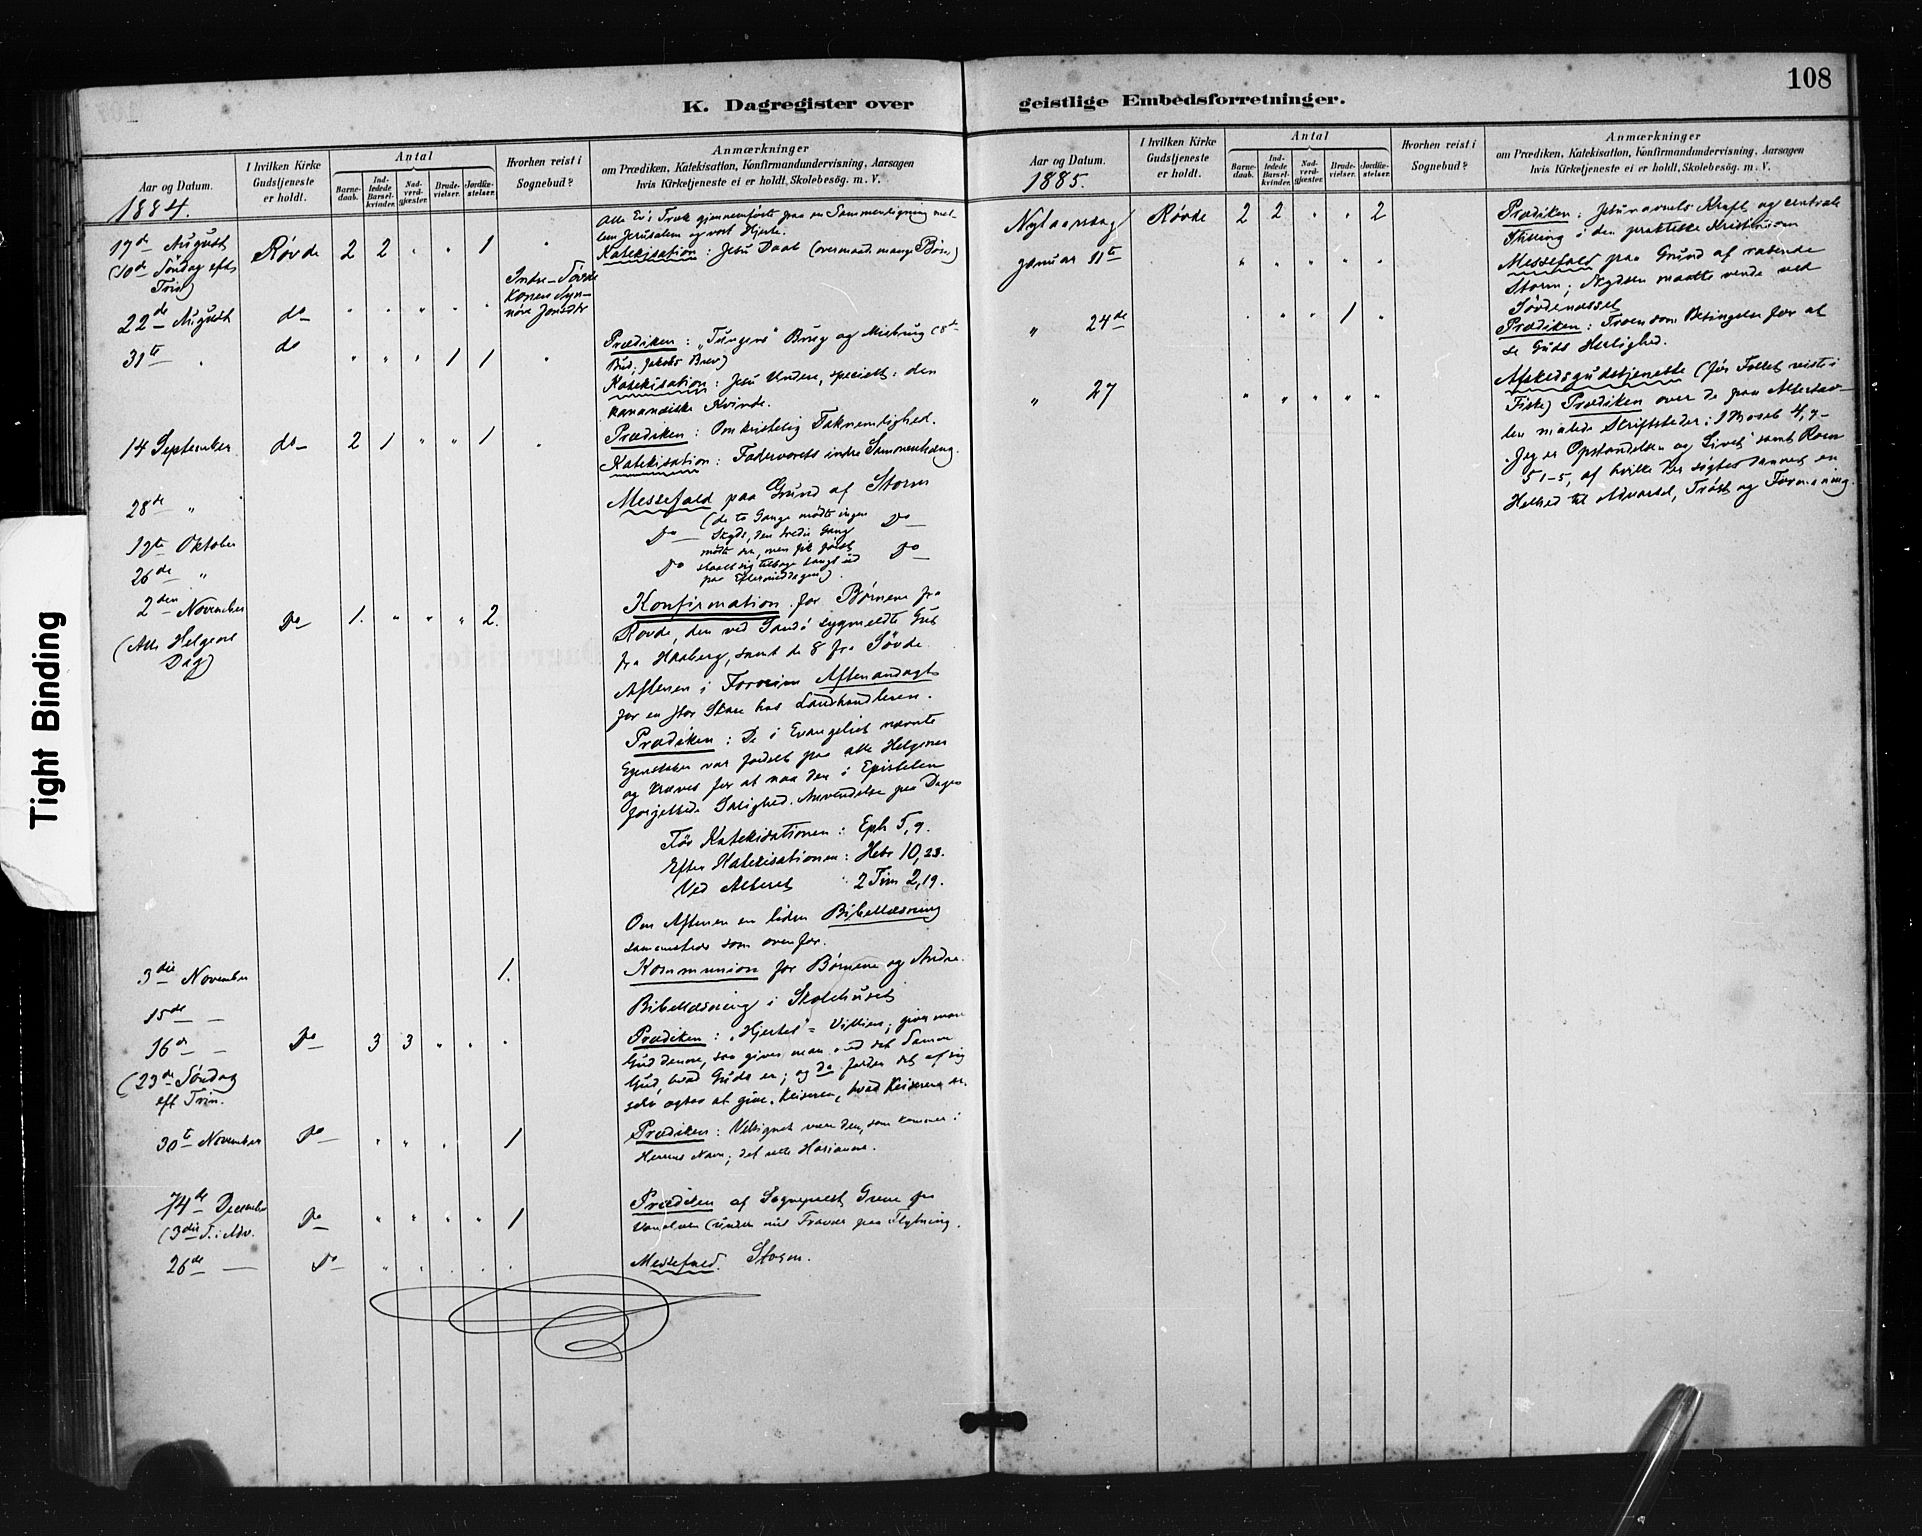 108
K. Dagregister over
geistlige Embedsforretninger.
Tight Binding
Aar og Datum.
1884.
I hvilken Kirke
Gudstjeneste
er holdt.
Antal
Barne-
daab.
Ind-
ledede
Barsel-
kvinder.
Nad-
verd-
gjæster.
Brude-
vielser.
Jordfæ-
stelser.
Hvorhen reist i
Sognebud?
Anmærkninger
om Prædiken, Katekisation, Konfirmandundervisning, Aarsagen
hvis Kirketjeneste ei er holdt, Skolebesög. m. V.
Alle Ev's Træk gjennemført paa en Sammenligning mel-
lem Jerusalem og vort Hjerte.
17de August Røvde 2 2 " " 1 "
(10de Söndag eft
Trin)
Katekisation: Jesu Daab (overmaade mange Børn)
Indre-Sövde
Konen Syn-
növe Jonsdtr
22de August do " " " " "
31te " do " " " 1 1 "
Prædiken: "Tungens" Brug og Misbrug (8de
Bud, Jakobs Brev)
Katekisation: Jesu Undere, specielt: den
kananæiske Kvinde.
14 September do 2 1 " " 1 "
Prædiken: Om kristelig Taknemlighed.
Katekisation: Fadervorets indre Sammenhæng.
28de "
Messefald paa Grund af Storm
19de Oktober
Do (de to Gange mødte ingen Do
Skyds, den tredie Gang
mödte en, men fik først
26de "
Do tilbage langt ud Do
paa Eftermiddagen).
2den November Do 1. " " " 2.
(Alle Helgens
Dag)
Konfirmation for Børnene fra
Røvde, den ved Sandö sygmeldte Gut
fra Haaberg, samt de 8 fra Sövde.
Aftenen i Forveien Aftenandagt
for en stor Skare hos Landhandleren.
Prædiken: De i Evangeliet nævnte
Egenskaber var fordelt paa alle Helgener
og kræves for at naa den i Epistelen
forjettede Salighed. Anvendelse paa Dagen
Før Katekisationen: Eph 5,9.
Efter Katekisationen: Hebr 10,23.
Ved Alteret " 2 Tim 2,19.
Om Aftenen en liden Bibellæsning
sammesteds som ovenfor.
3die November 1.
Kommunion for Børnene og Andre.
15de
Bibellæsning i Skolehuset
16de Do 3 3 " " "
(23de Söndag
eft Trin.
Prædiken: "Hjertet" = Viljen; giver man
Gud denne, saa giver man med det Samme
Gud, hvad Guds er; og da falder det af sig
selv ogsaa at give Keiseren, hvad Keiserens er.
30te November Do " " " 1
Prædiken: Velsignet være den, som kommer i
Herrens Navn; det rette Hosianna.
14de December Do " " " " 1
(3die S. i Adv.
Prædiken af Sognepræst Greve fra
Vanelven (under mit Fravær paa Flytning.
26de Do " " " " "
Messefald. Storm.
Aar og Datum.
1885.
I hvilken Kirke
Gudstjeneste
er holdt.
Antal
Barne-
daab.
Ind-
ledede
Barsel-
kvinder.
Nad-
verd-
gjæster.
Brude-
vielser.
Jordfæ-
stelser.
Hvorhen reist i
Sognebud?
Anmærkninger
om Prædiken, Katekisation, Konfirmandundervisning, Aarsagen
hvis Kirketjeneste ei er holdt, Skolebesög. m. V.
Nytaarsdag Røvde 2 2 " " 2
Prædiken: Jesunavnets Kraft og centrale
Stilling i den praktiske Kristendom
Januar 11te " " " " "
Messefald paa Grund af rasende
Storm; Skydsen maatte vende ved
Sövdenæsset
" 24de " " " 1 "
Prædiken: Troen som Betingelse for at
se Guds Herlighed.
" 27 " " " " "
Afskedsgudstjeneste (för Folket reiste i
Fiske) Prædiken over de paa Altertav-
len malede Skriftsteder: 1 Moseb 4,7-
"Jeg er Opstandelsen og Livet" samt Rom
5 1-5, af hvilke der søgtes dannet en
Helhed til Advarsel, Trøst og Formaning.